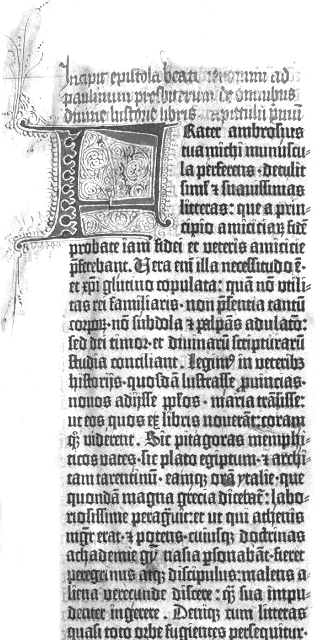 Incipit epistola beati ad
paulinum presbiterum de omnibus
divine historie libris. capitulū pͥmū
Frater ambrosius
tua michi munuscu-
la perferens. detulit
simĺ et suavissimas
litteras: que a prin-
cipio amiciciaȝ fidē
probate iam fidei et veteris amicicie
p̄ferebant. Vera enī illa necessitudo ē.
et xp̄i glutino copulata: quā nō utili-
tas rei familiaris. non p̄sentia tantū
corpoꝝ. nō subdola et palpās adulatō:
sed dei timor. et divinarū scripturarū
studia conciliant. Legimꝰ in veteribꝫ
historijs. quosdā lustrasse ꝓuincias.
novos adijsse ppl̄os. maria trāsisse:
ut eos quos ex libris noverāt: coram
qꝫ viderent. Sic pitagoras memphi-
ticos vates. sic plato egiptum. et archi-
tam tarentinū. eamqꝫ orā ytalie. que
quondā magna grecia dicebat̄: labo-
riosissime peragravit: et ut qui athenis
mgr̄ erat. et potens. cuiusqꝫ doctrinas
achademie gignasia ꝑsonabāt. fieret
peregrinus atqꝫ discipulus: malens a-
liena verecunde discere: qꝫ sua impu-
denter ingerere. Deniqꝫ cum litteras
quasi toto orbe fugientes persequitur.